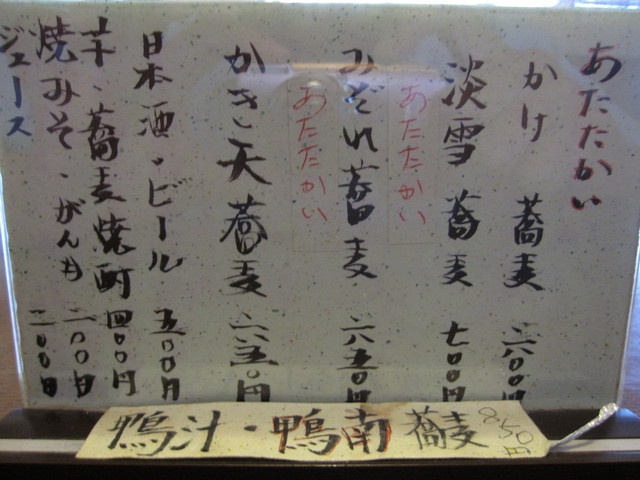 あたたかい
かけ 蕎麦 六〇〇円
淡雪 蕎麦 七〇〇円
あたたかい
みぞれ蕎麦 六五〇円
あたたかい
かき天蕎麦 六五〇円
日本酒・ビール 五〇〇円
芋・蕎麦焼酎 四〇〇円
焼みそ・がんも 二〇〇円
ジュース 二〇〇円
鴨汁・鴨南蕎麦 850円